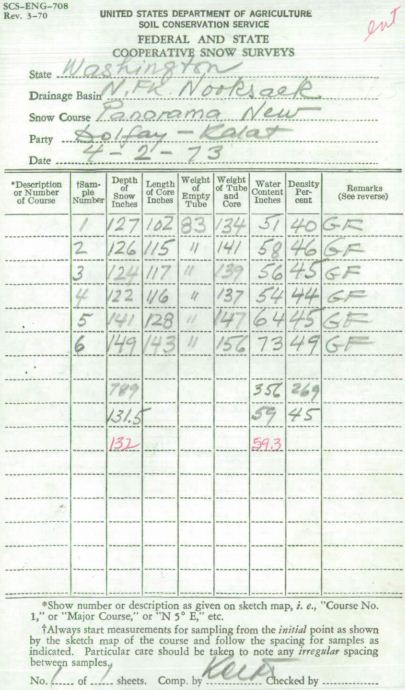 SCS-ENG-708
Rev. 3-70
ent
UNITED STATES DEPARTMENT OF AGRICULTURE
SOIL CONSERVATION SERVICE
FEDERAL AND STATE
COOPERATIVE SNOW SURVEYS
State Washington
Drainage Basin N. FK. Nooksack
Snow Course Panorama New
Party Kalat
Date 4-2-73
*Description or Number of Course †Sample Number Depth of Snow Inches Length of Core Inches Weight of Empty Tube Weight of Tube and Core Water Content Inches Density Percent Remarks (See reverse)
1 127 102 83 134 51 40 GF
2 126 115 " 141 58 46 GF
3 124 117 " 139 56 45 GF
4 122 116 " 137 54 44 GF
5 141 128 " 147 64 45 GF
6 149 143 " 156 73 49 GF
789 356 269
131.5 59 45
132 59.3
*Show number or description as given on sketch map, i. e., "Course No.
1," or "Major Course," or "N 5° E," etc.
†Always start measurements for sampling from the initial point as shown
by the sketch map of the course and follow the spacing for samples as
indicated. Particular care should be taken to note any irregular spacing
between samples.
No. 1 of 1 sheets. Comp. by Checked by